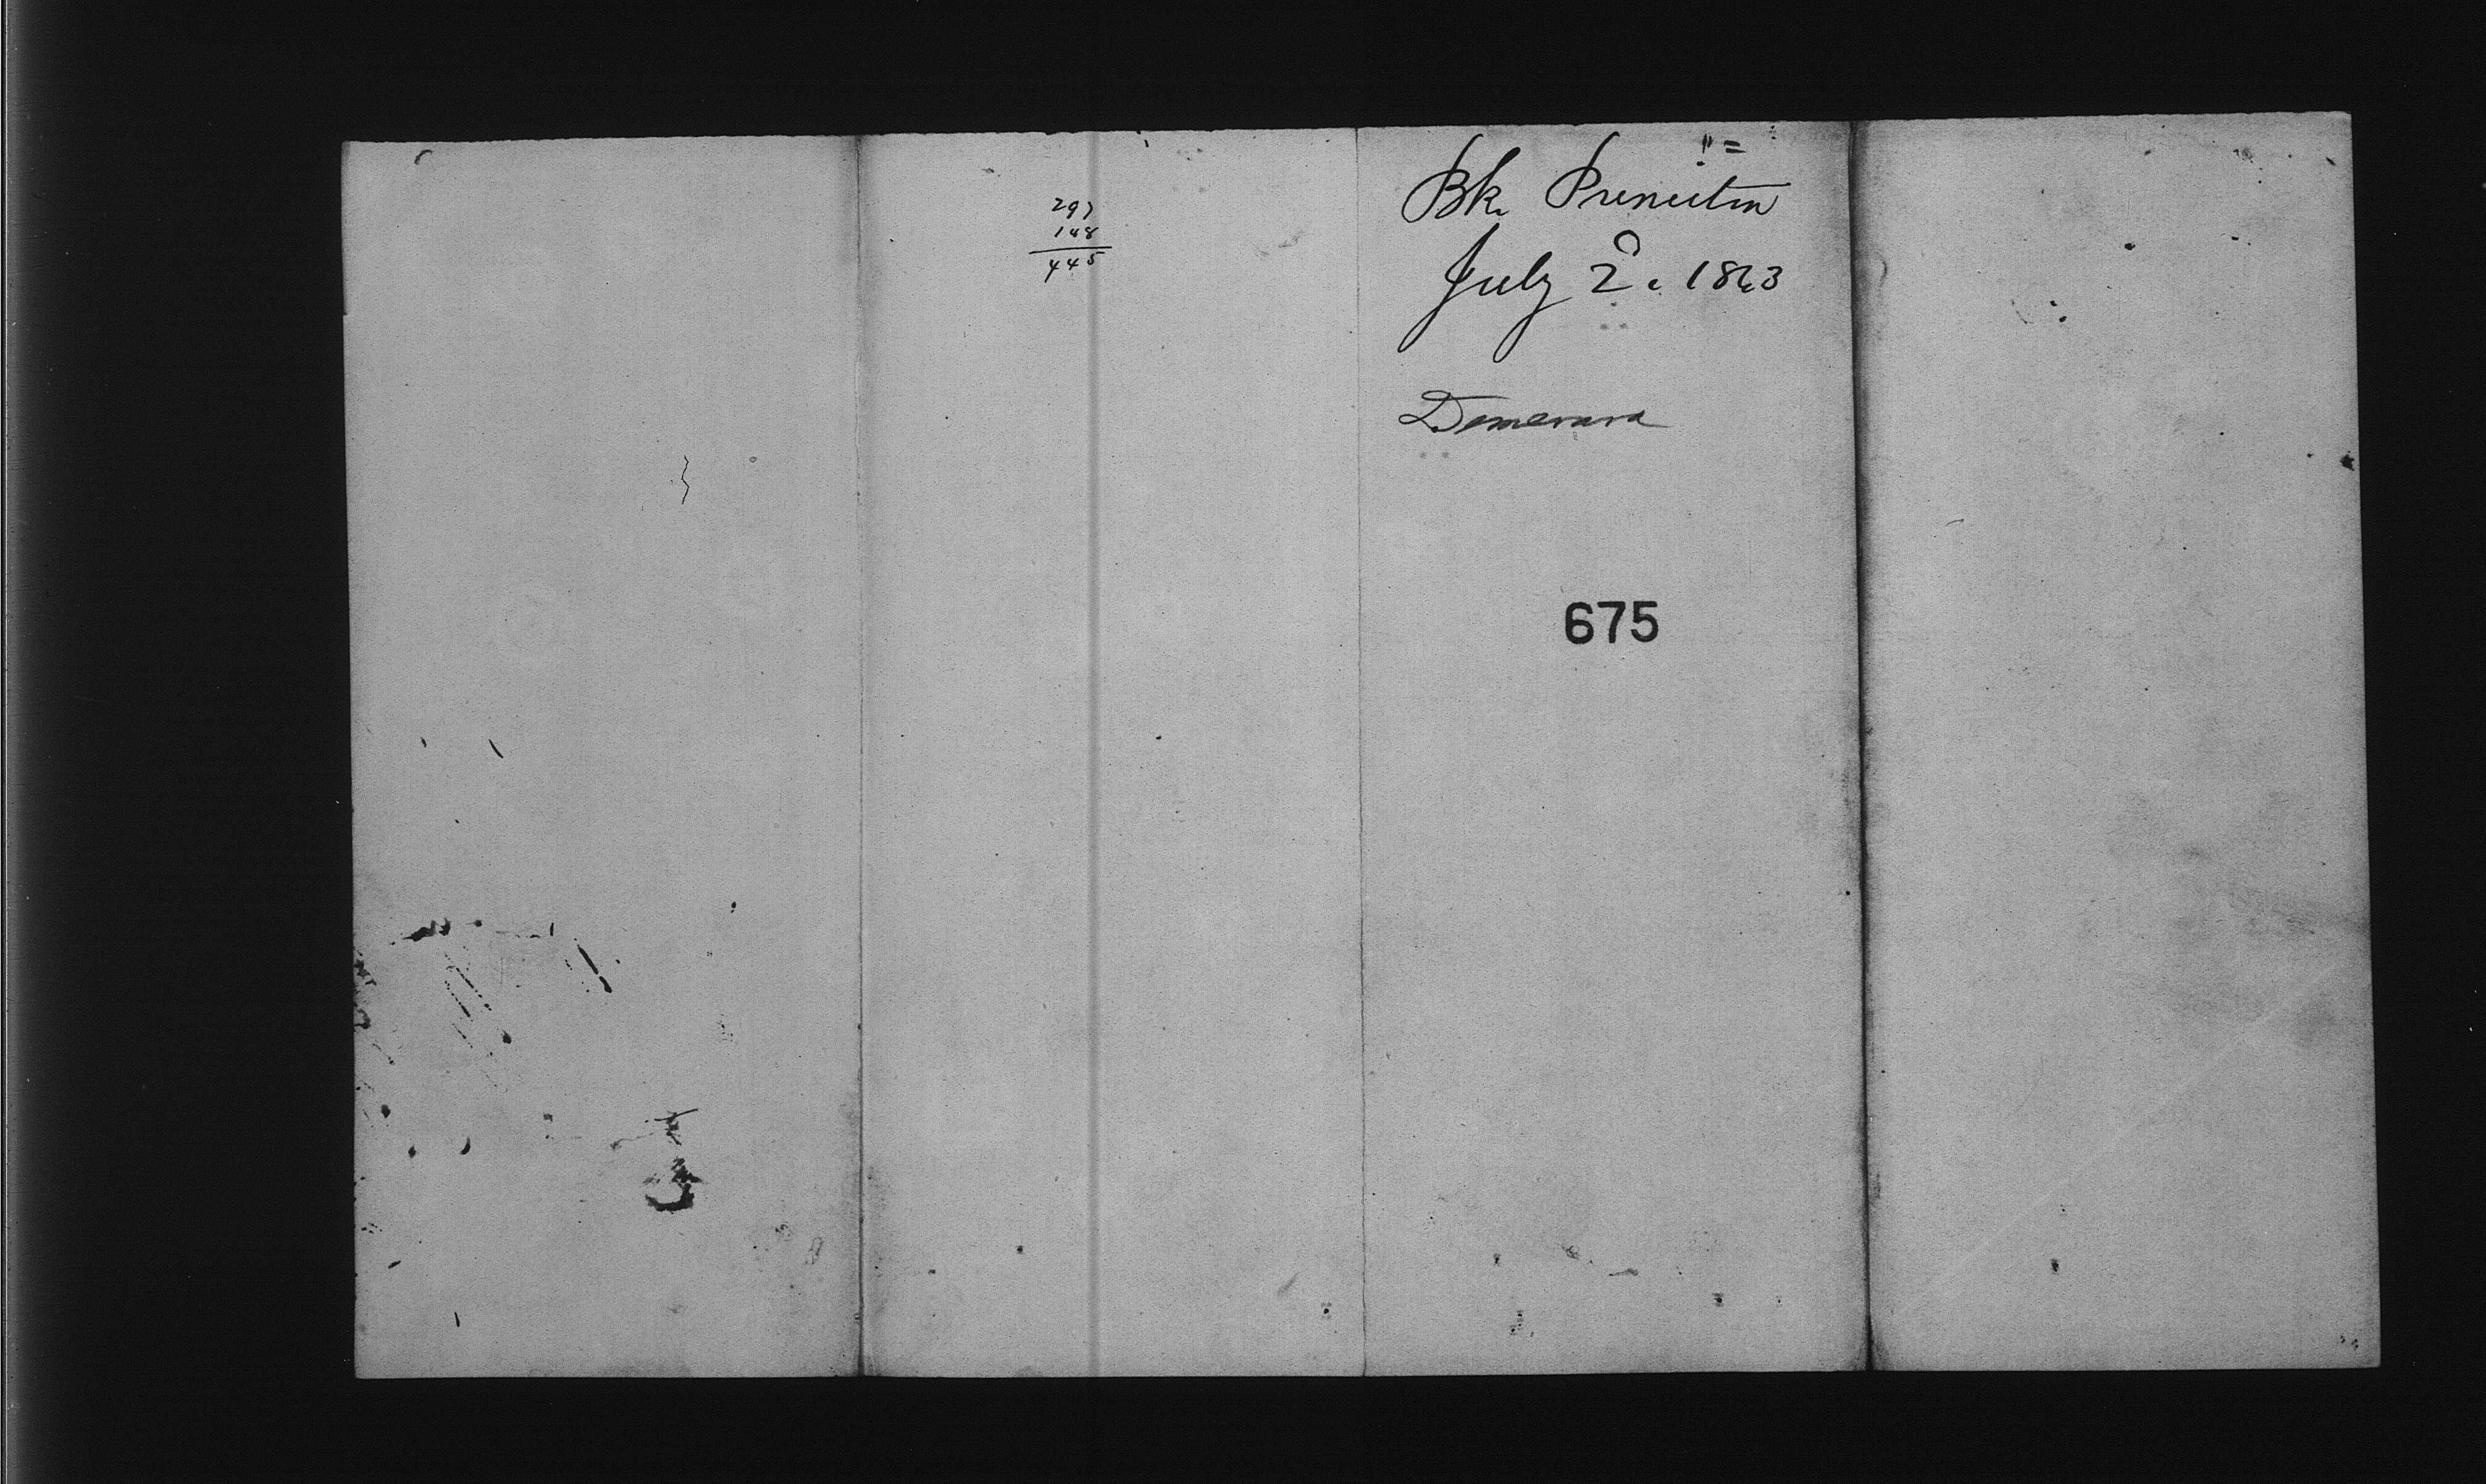 297
148
445
Bk. Princeton
July 2d. 1863
Demerara
675